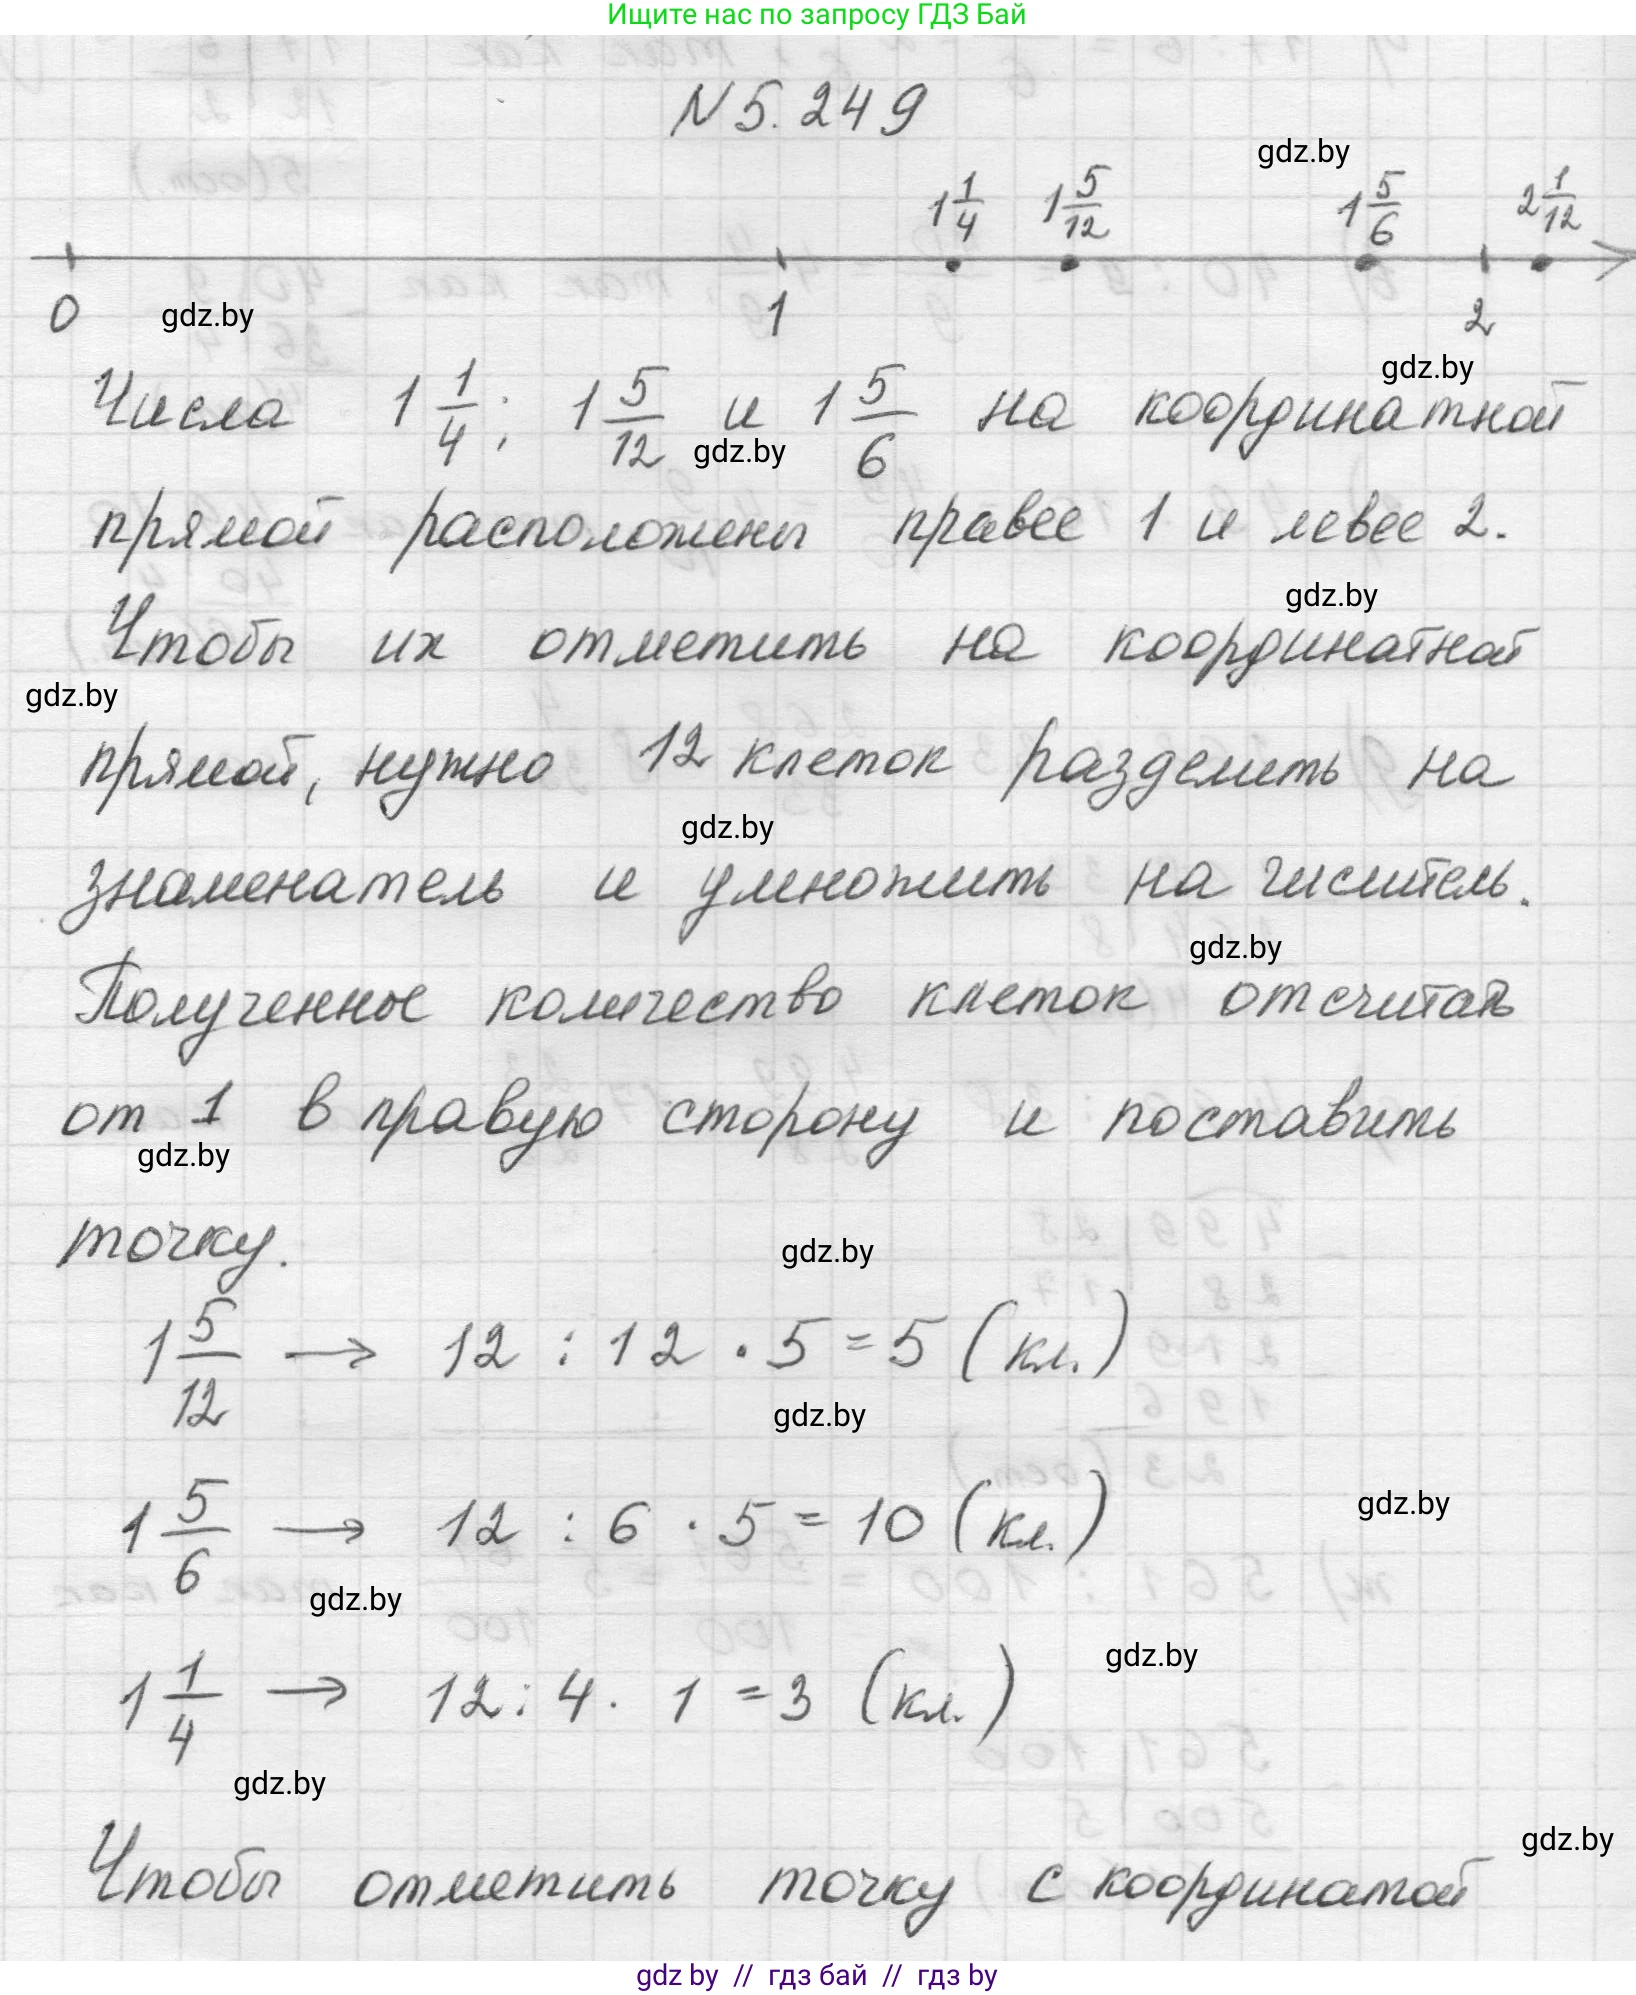 Ищите нас по запросу ГДЗ Бай
N 5.249
gdz.by
1 1/4 1 5/12 1 5/6 2 1/12
0 1 2
gdz.by
gdz.by
Числа 1 1/4; 1 5/12 и 1 5/6 на координатной
gdz.by
прямой расположены правее 1 и левее 2.
gdz.by
Чтобы их отметить на координатной
gdz.by
прямой, нужно 12 клеток разделить на
gdz.by
знаменатель и умножить на числитель.
gdz.by
Полученное количество клеток отсчитать
от 1 в правую сторону и поставить
gdz.by
точку.
gdz.by
1 5/12 → 12 : 12 · 5 = 5 (кл.)
gdz.by
gdz.by
1 5/6 → 12 : 6 · 5 = 10 (кл.)
gdz.by
gdz.by
1 1/4 → 12 : 4 · 1 = 3 (кл.)
gdz.by
gdz.by
Чтобы отметить точку с координатой
gdz by // гдз бай // гдз by